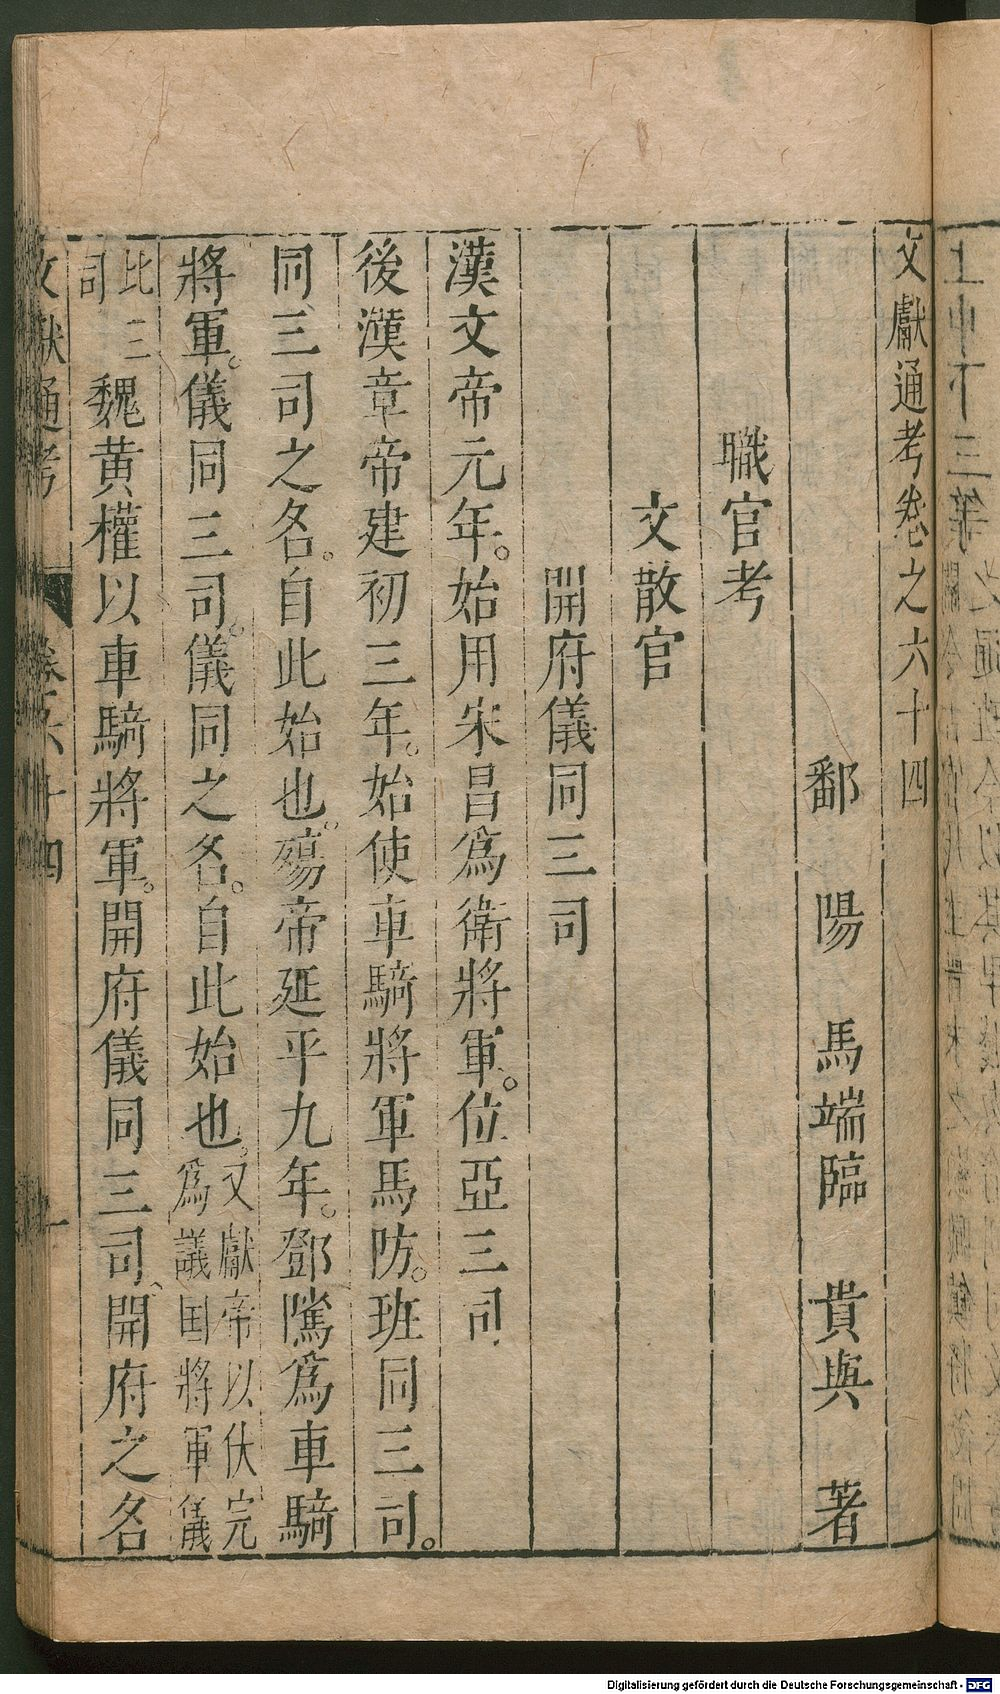 文獻通考卷之六十四
鄱陽馬端臨貴與著
職官考
文散官
開府儀同三司
漢文帝元年。始用宋昌爲衛將軍。位亞三司
後漢章帝建初三年。始使車騎將軍馬防。班同三司。
同三司之名。自此始也。殤帝延平九年。鄧騭爲車騎
將軍。儀同三司。儀同之名。自此始也。又獻帝以伏完爲議国將軍儀
比三司魏黄權以車騎將軍。開府儀同三司、開府之名
文獻通考 卷六十四 一
Digitalisierung gefördert durch die Deutsche Forschungsgemeinschaft - DFG